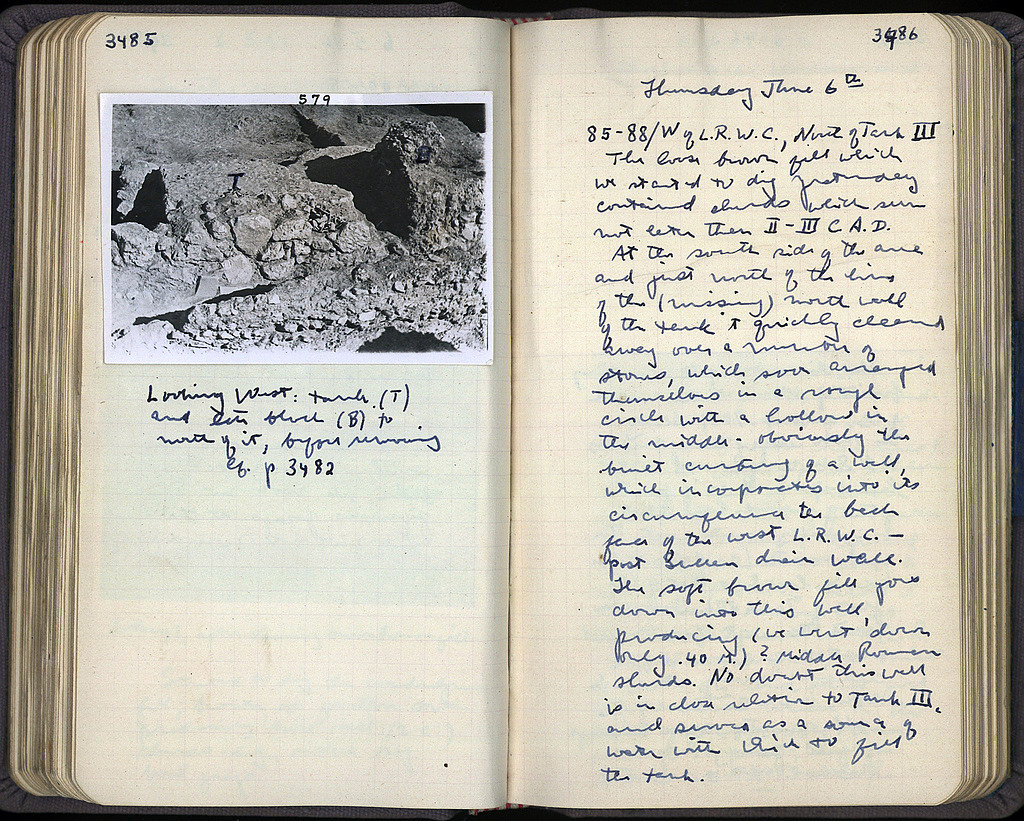 3485
579
T
B
Looking West: tank (T)
and late block (B) to
north of it, before removing
cf. p 3482
3486
Thursday June 6th
85-88/W of L.R.W.C., North of Tank III
The loose brown fill which
we started to dig yesterday
contained sherds which seem
not later than II-III C A.D.
At the south side of the area
and just north of the line
of the (missing) north wall
of the tank I quickly cleaned
away over a number of
stones, which soon arranged
themselves in a rough
circle with a hollow in
the middle - obviously the
built curbing of a well,
which incorporates into its
circumference the back
face of the west L.R.W.C. —
post Sullan drain wall.
The soft brown fill goes
down into this well,
producing (we went down
only .40 M.) ? Middle Roman
sherds. No doubt this well
is in close relation to Tank III,
and served as a source of
water with which to fill
the tank.